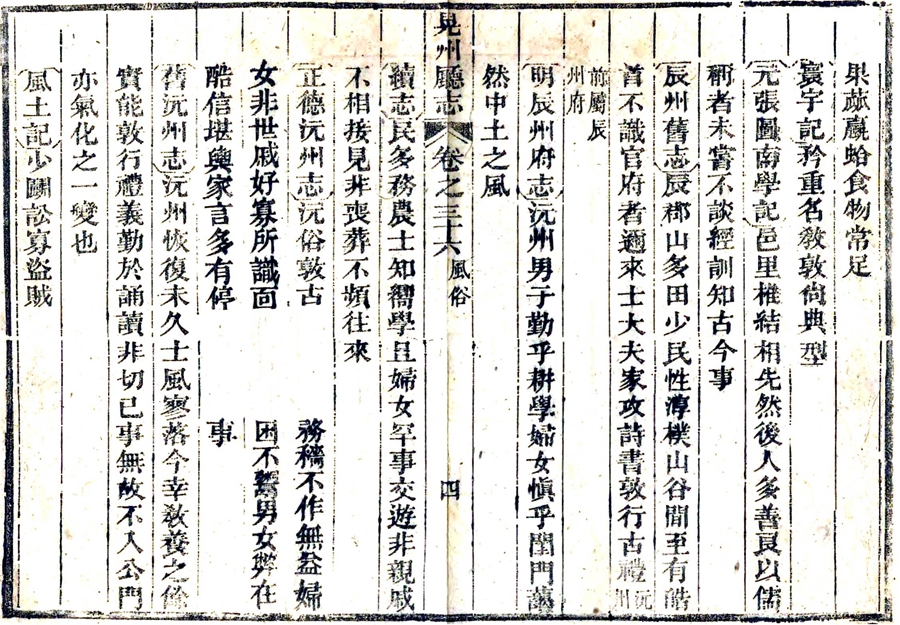 果蓏蠃蛤食物常足
寰宇記矜重名教敦尚典型
元張圖南學記邑里椎結相先然後人多善良以儒
稱者未嘗不談經訓知古今事
辰州舊志辰郡山多田少民性淳樸山谷間至有皓
首不識官府者邇來士大夫家攻詩書敦行古禮沅州
前屬辰州府
明辰州府志沅州男子勤乎耕學婦女愼乎閨門藹
然中土之風
晃州廳志 卷之三十六 風俗 四
續志民多務農士知嚮學且婦女罕事交遊非親戚
不相接見非喪葬不頻往來
正德沅州志沅俗敦古 務穡不作無益婦
女非世戚好寡所識面 困不鬻男女弊在
酷信堪輿家言多有停 事
舊沅州志沅州恢復未久士風寥落今幸教養之餘
實能敦行禮義勤於誦讀非切已事無故不入公門
亦氣化之一變也
風土記少鬭訟寡盜賊